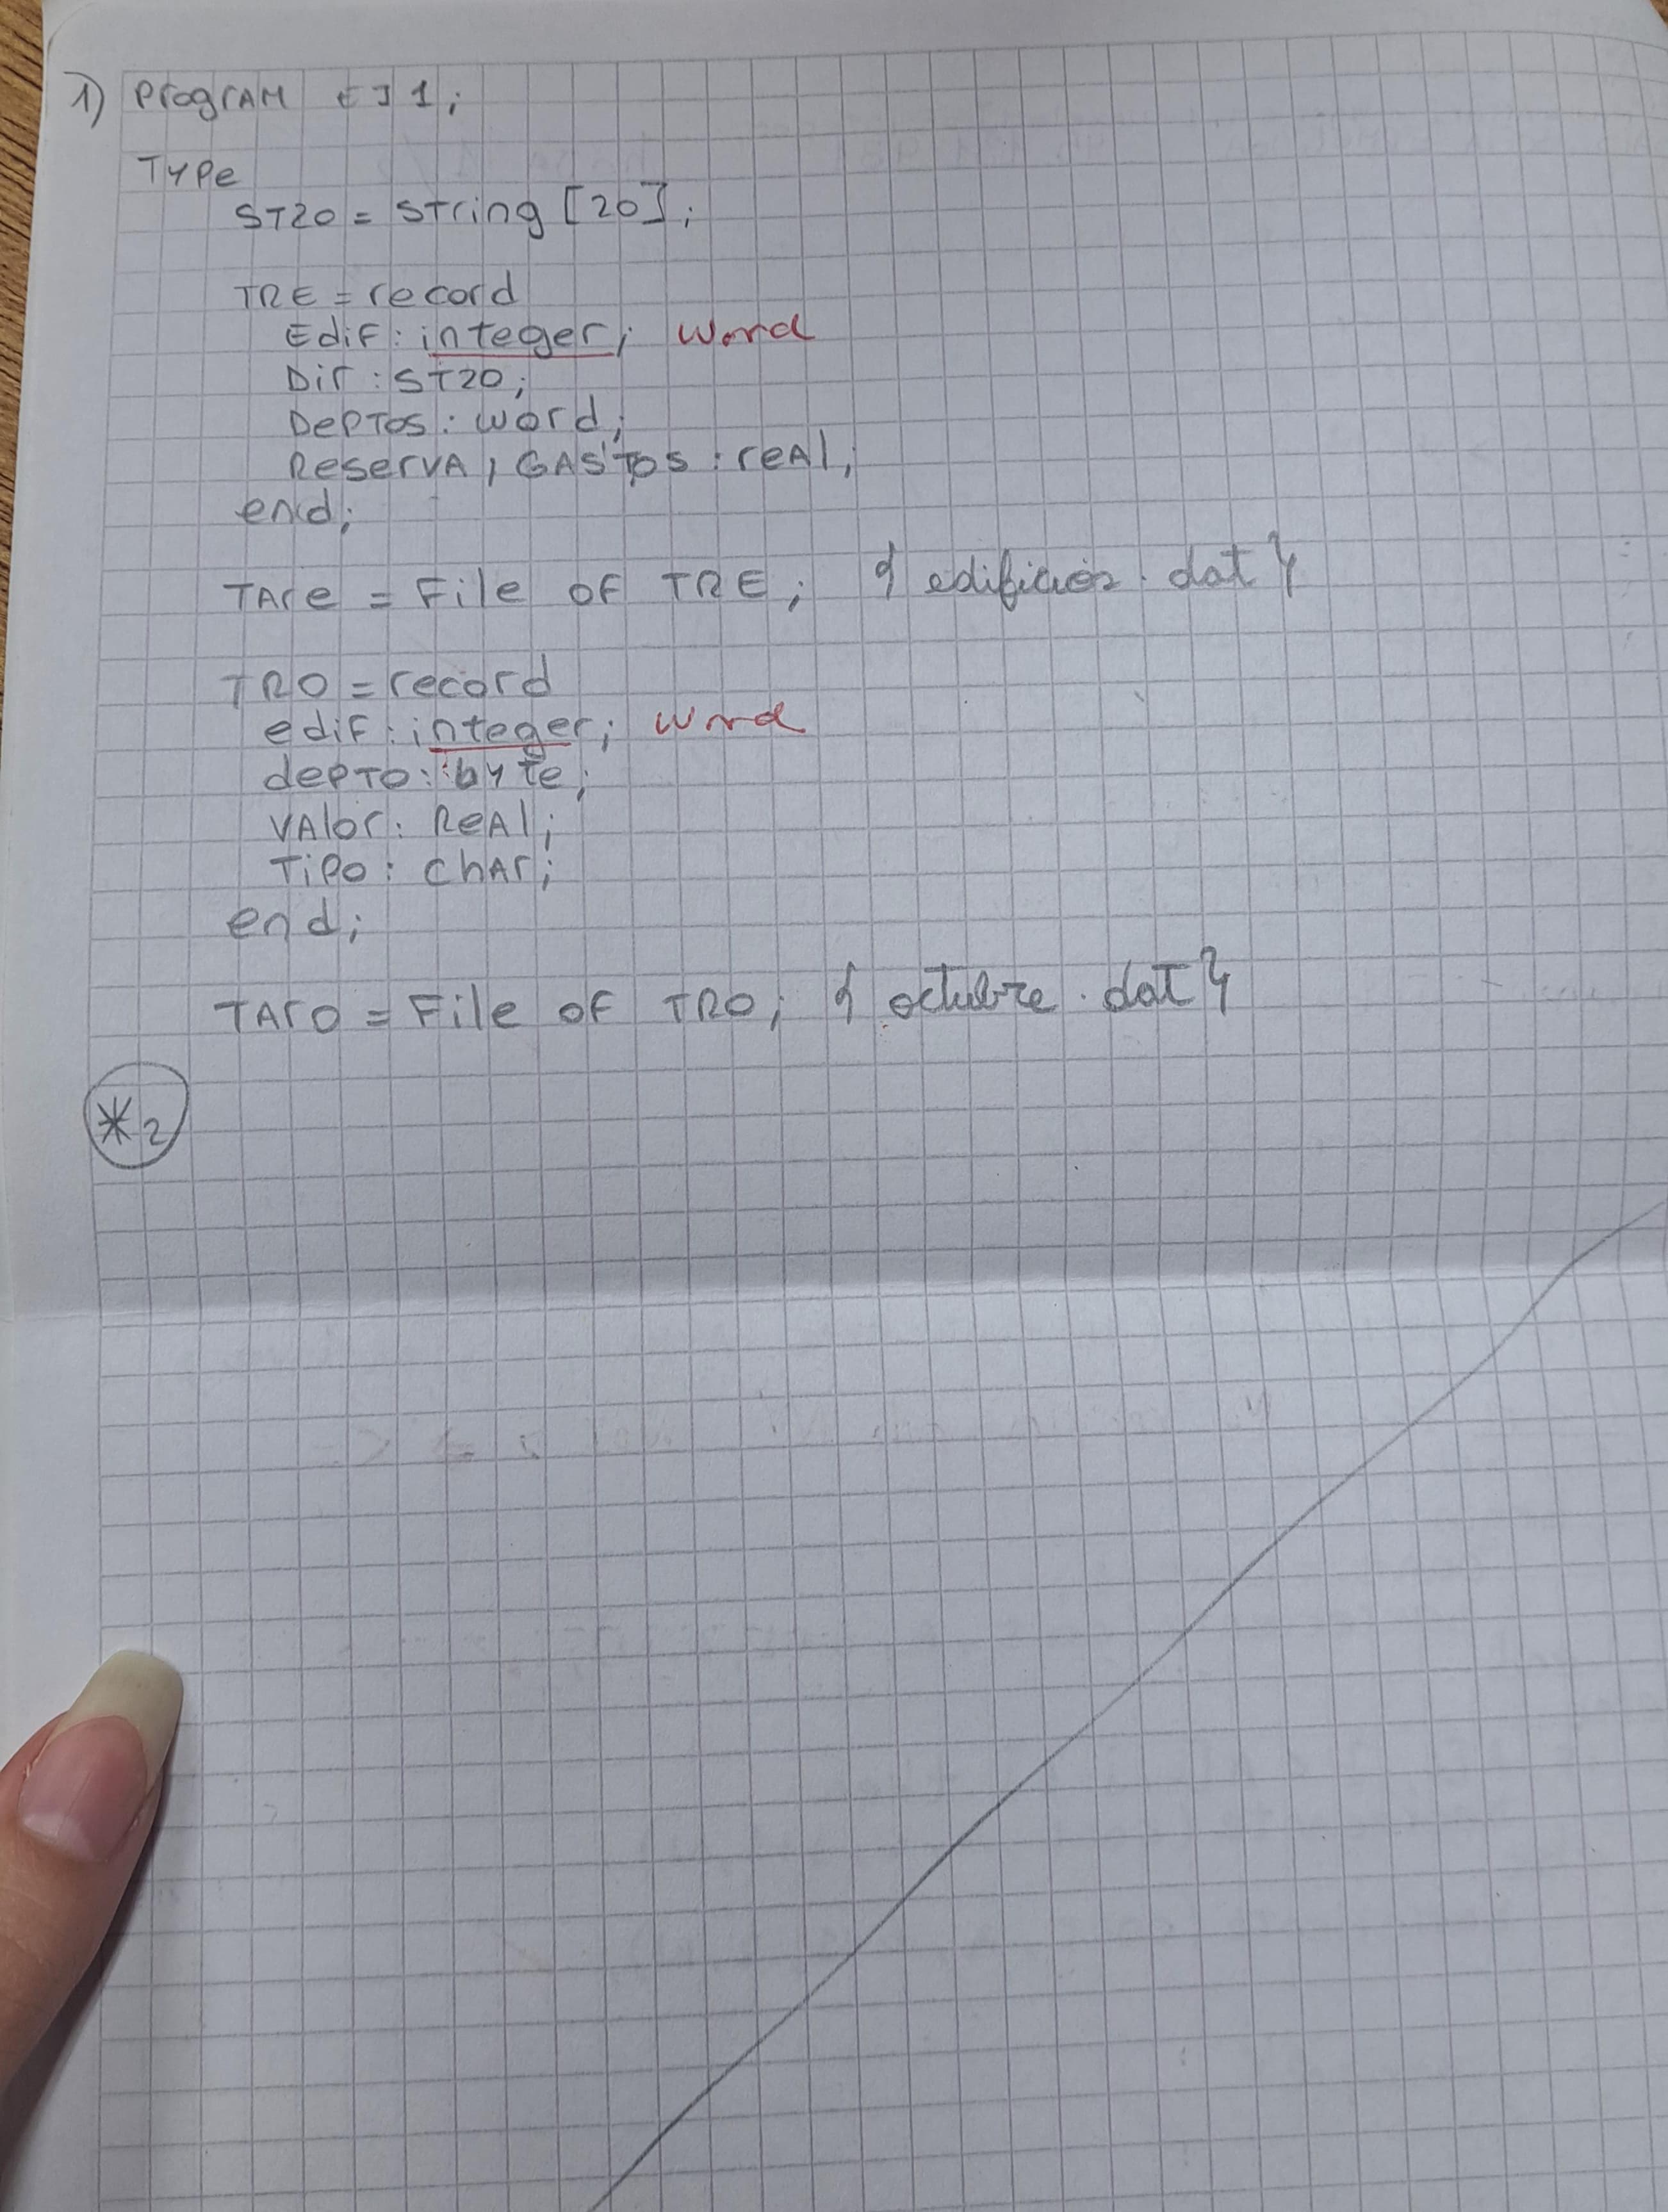 1) PrograM EJ1;
Type
ST20 = String [20];
TRE = record
Edif: integer; Word
Dir: ST20;
Deptos: word;
ReservA, GASTOS: reAl;
end;
TAre = File of TRE; { edificios.dat }
TRO = record
edif: integer; Word
depto: byte;
VAlor: ReAl;
Tipo: chAr;
end;
TAro = File of TRO; { octubre.dat }
*2